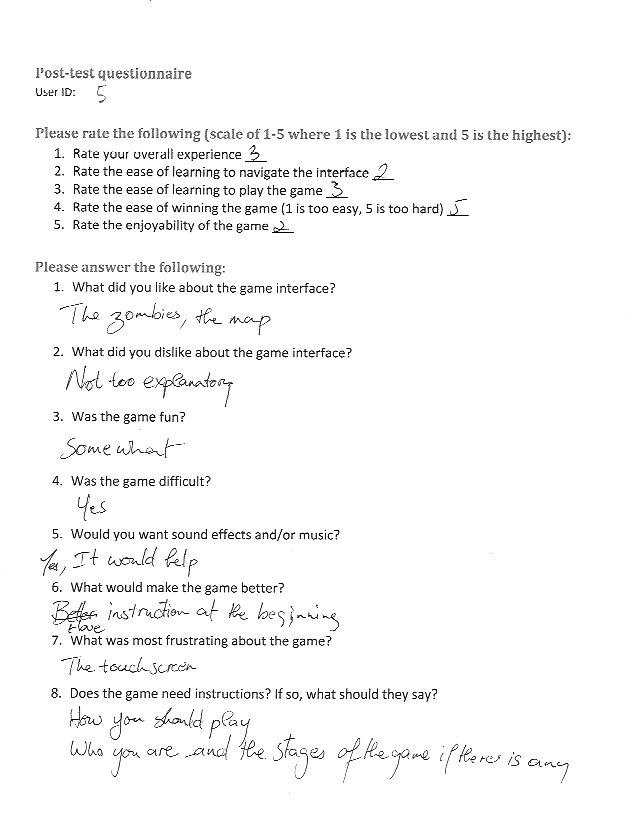 Post-test questionnaire
User ID: 5
Please rate the following (scale of 1-5 where 1 is the lowest and 5 is the highest):
1. Rate your overall experience 3
2. Rate the ease of learning to navigate the interface 2
3. Rate the ease of learning to play the game 3
4. Rate the ease of winning the game (1 is too easy, 5 is too hard) 5
5. Rate the enjoyability of the game 2
Please answer the following:
1. What did you like about the game interface?
The zombies, the map
2. What did you dislike about the game interface?
Not too explanatory
3. Was the game fun?
Somewhat
4. Was the game difficult?
Yes
5. Would you want sound effects and/or music?
Yes, It would help
6. What would make the game better?
Better instruction at the beginning
Have
7. What was most frustrating about the game?
The touch screen
8. Does the game need instructions? If so, what should they say?
How you should play
Who you are and the stages of the game if theres is any